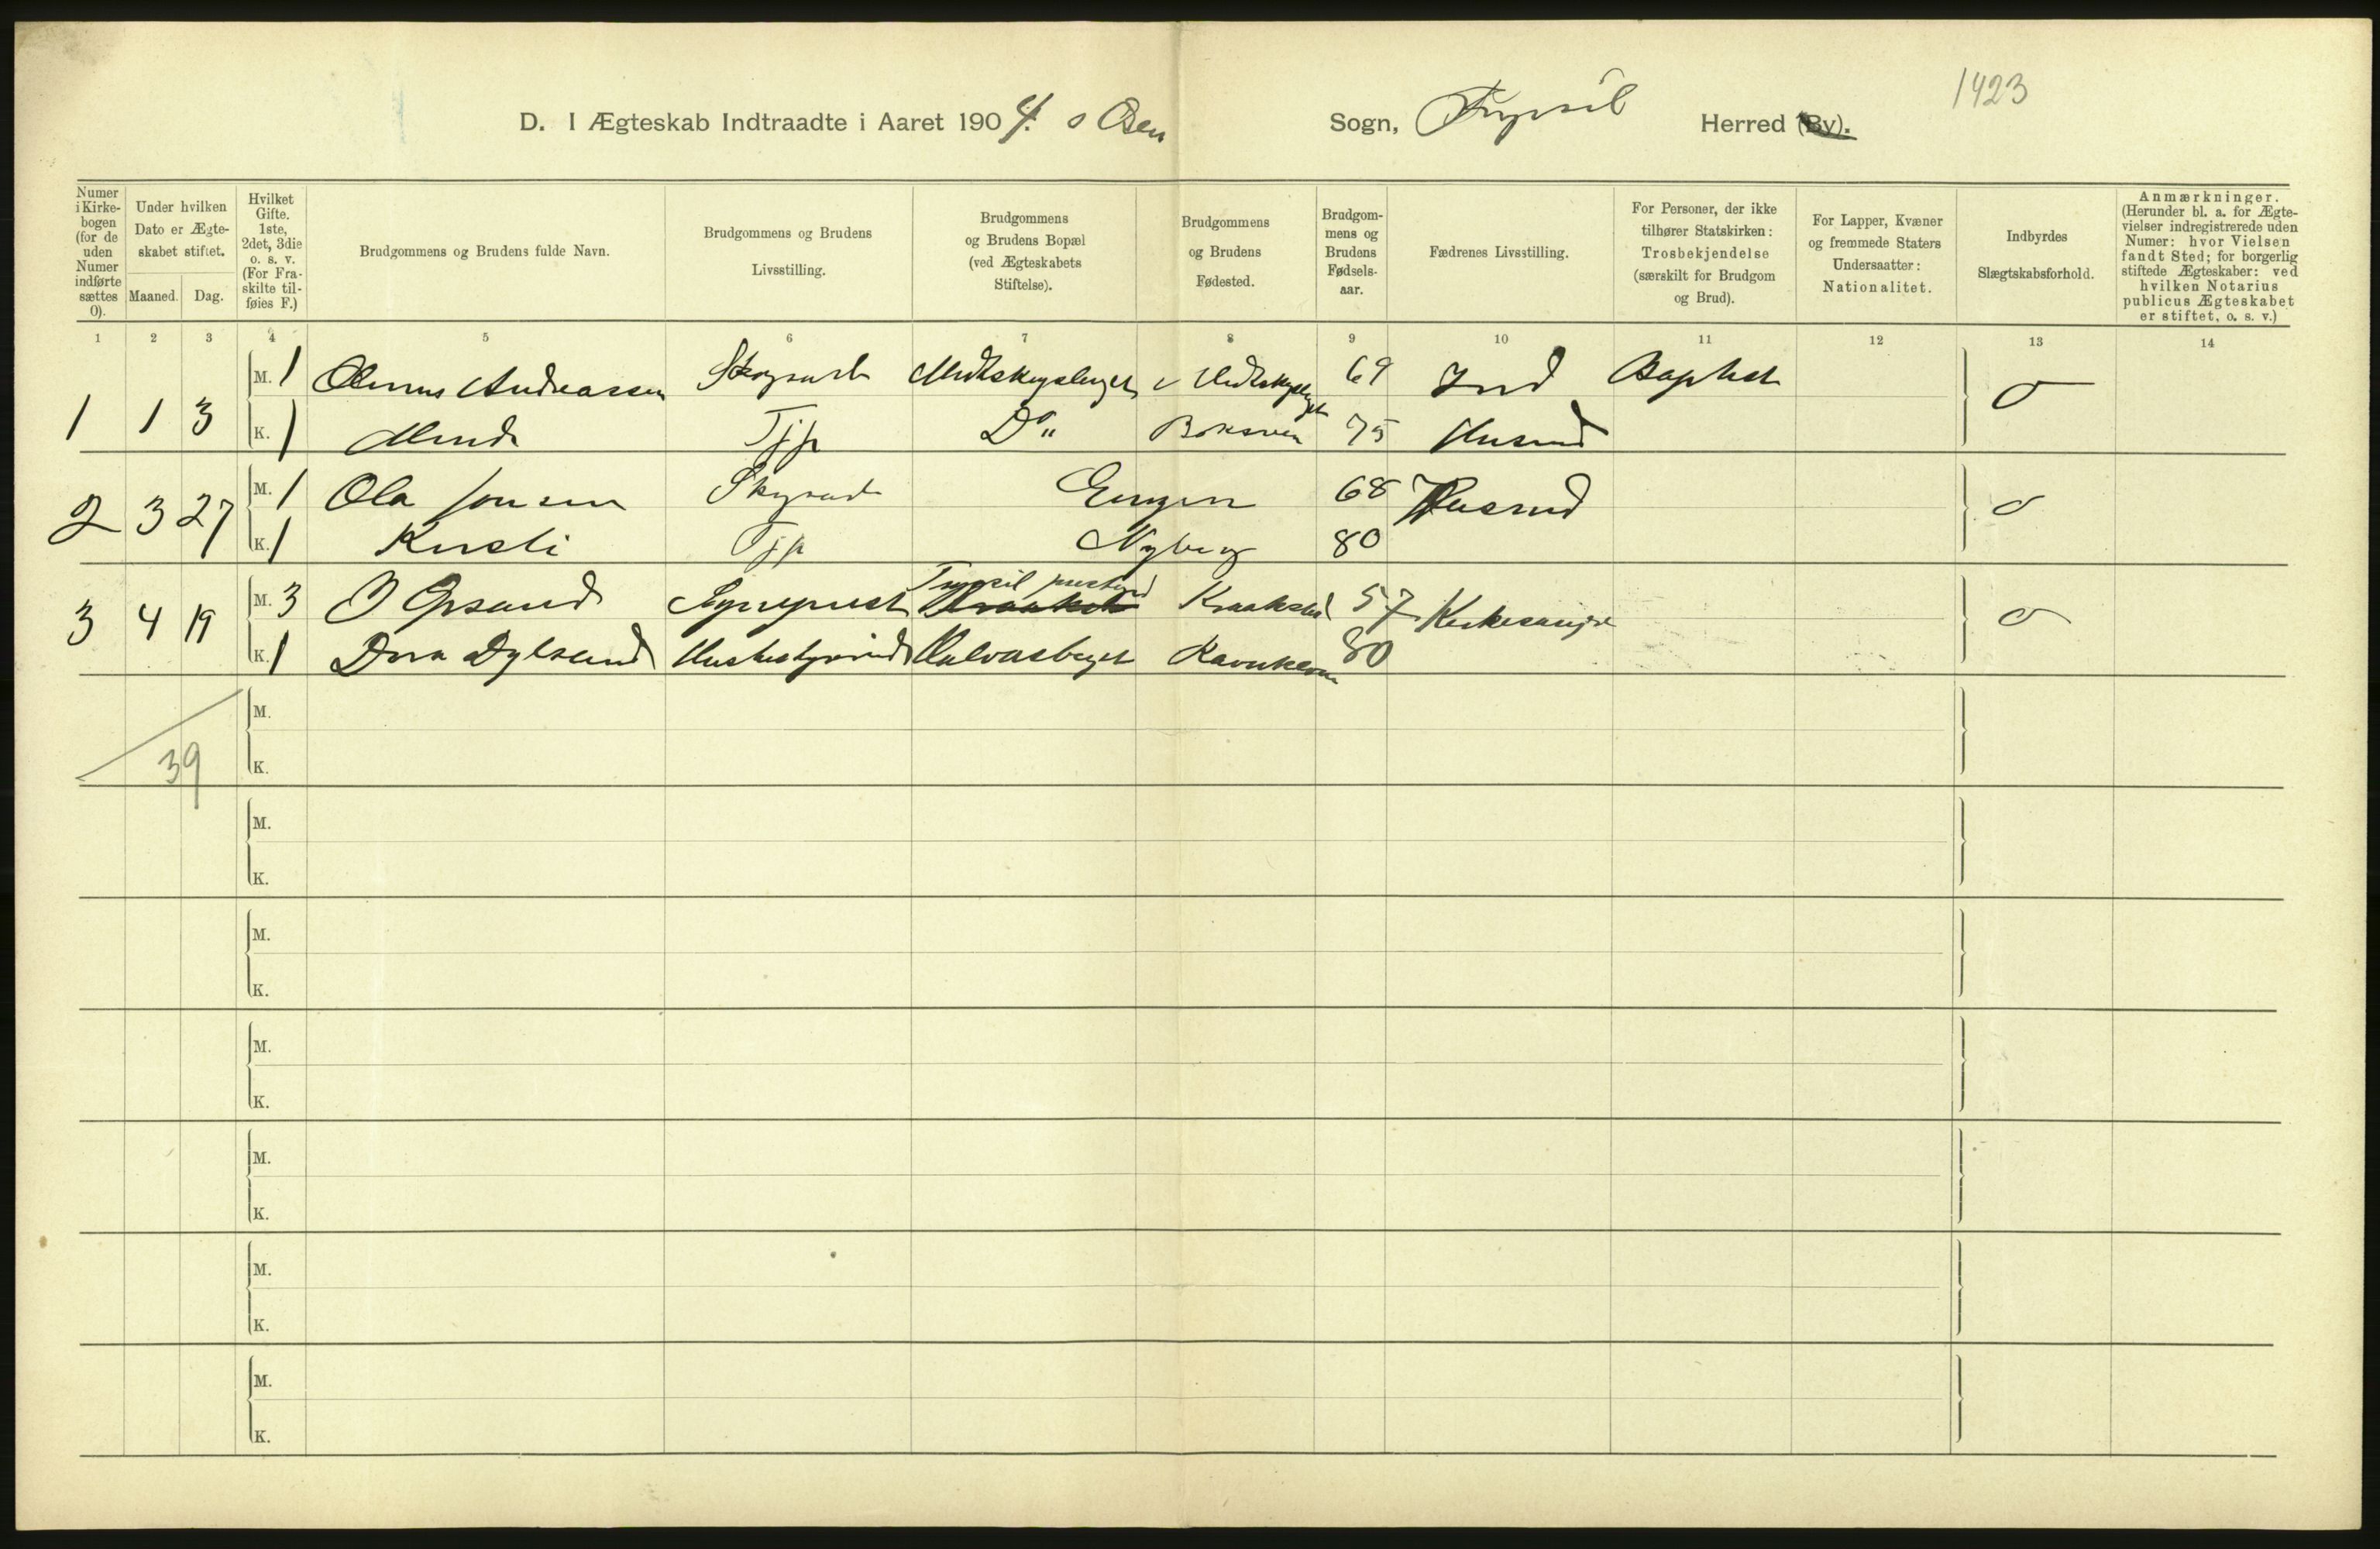 1423
D. I Ægteskab Indtraadte i Aaret 1904. s Osen Sogn, Trysil Herred (By).
Numer i Kirkebogen (for de uden Numer indførte sættes 0).
Under hvilken Dato er Ægteskabet stiftet.
Maaned. Dag.
Hvilket Gifte. 1ste, 2det, 3die o. s. v. (For Fraskilte tilføies F.)
Brudgommens og Brudens fulde Navn.
Brudgommens og Brudens Livsstilling.
Brudgommens og Brudens Bopæl (ved Ægteskabets Stiftelse).
Brudgommens og Brudens Fødested.
Brudgommens og Brudens Fødselsaar.
Fædrenes Livsstilling.
For Personer, der ikke tilhører Statskirken: Trosbekjendelse (særskilt for Brudgom og Brud).
For Lapper, Kvæner og fremmede Staters Undersaatter: Nationalitet.
Indbyrdes Slægtskabsforhold.
Anmærkninger. (Herunder bl. a. for Ægtevielser indregistrerede uden Numer: hvor Vielsen fandt Sted; for borgerlig stiftede Ægteskaber: ved hvilken Notarius publicus Ægteskabet er stiftet, o. s. v.)
1 2 3 4 5 6 7 8 9 10 11 12 13 14
M. 1 Olinus Andreassen 69 Baptist
1 1 3 0
K. 1 Tjp Do " 75 Husmd
M. 1 Ola Jonsen Engen 68 Husmd
2 3 27 0
K. 1 Kirsti Tjp Nyberg 80
M. 3 O Opsand Sogneprest Trysil prestegd Kraakstad 57 Kirkesanger
3 4 19 0
K. 1 80
M.
39
K.
M.
K.
M.
K.
M.
K.
M.
K.
M.
K.
M.
K.